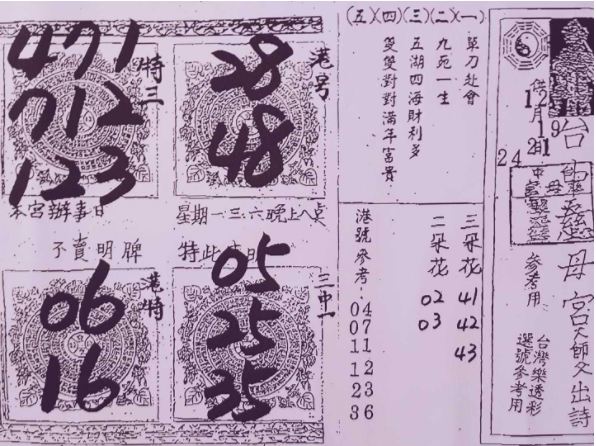 台中
靈慈母宮天師父出詩
台灣樂透彩
選號參考用
參考用
12月19
24
(五)(四)(三)(二)(一)
單刀赴會
九死一生
五湖四海財利多
雙雙對對滿年富貴
三朵花
41
42
43
二朵花
02
03
港號參考：
04
07
11
12
23
36
港号
28
48
特三
471
712
123
本宮辦事日
星期一.三.六晚上八点
不賣明牌
特此声明
三中一
05
25
35
港特
06
16